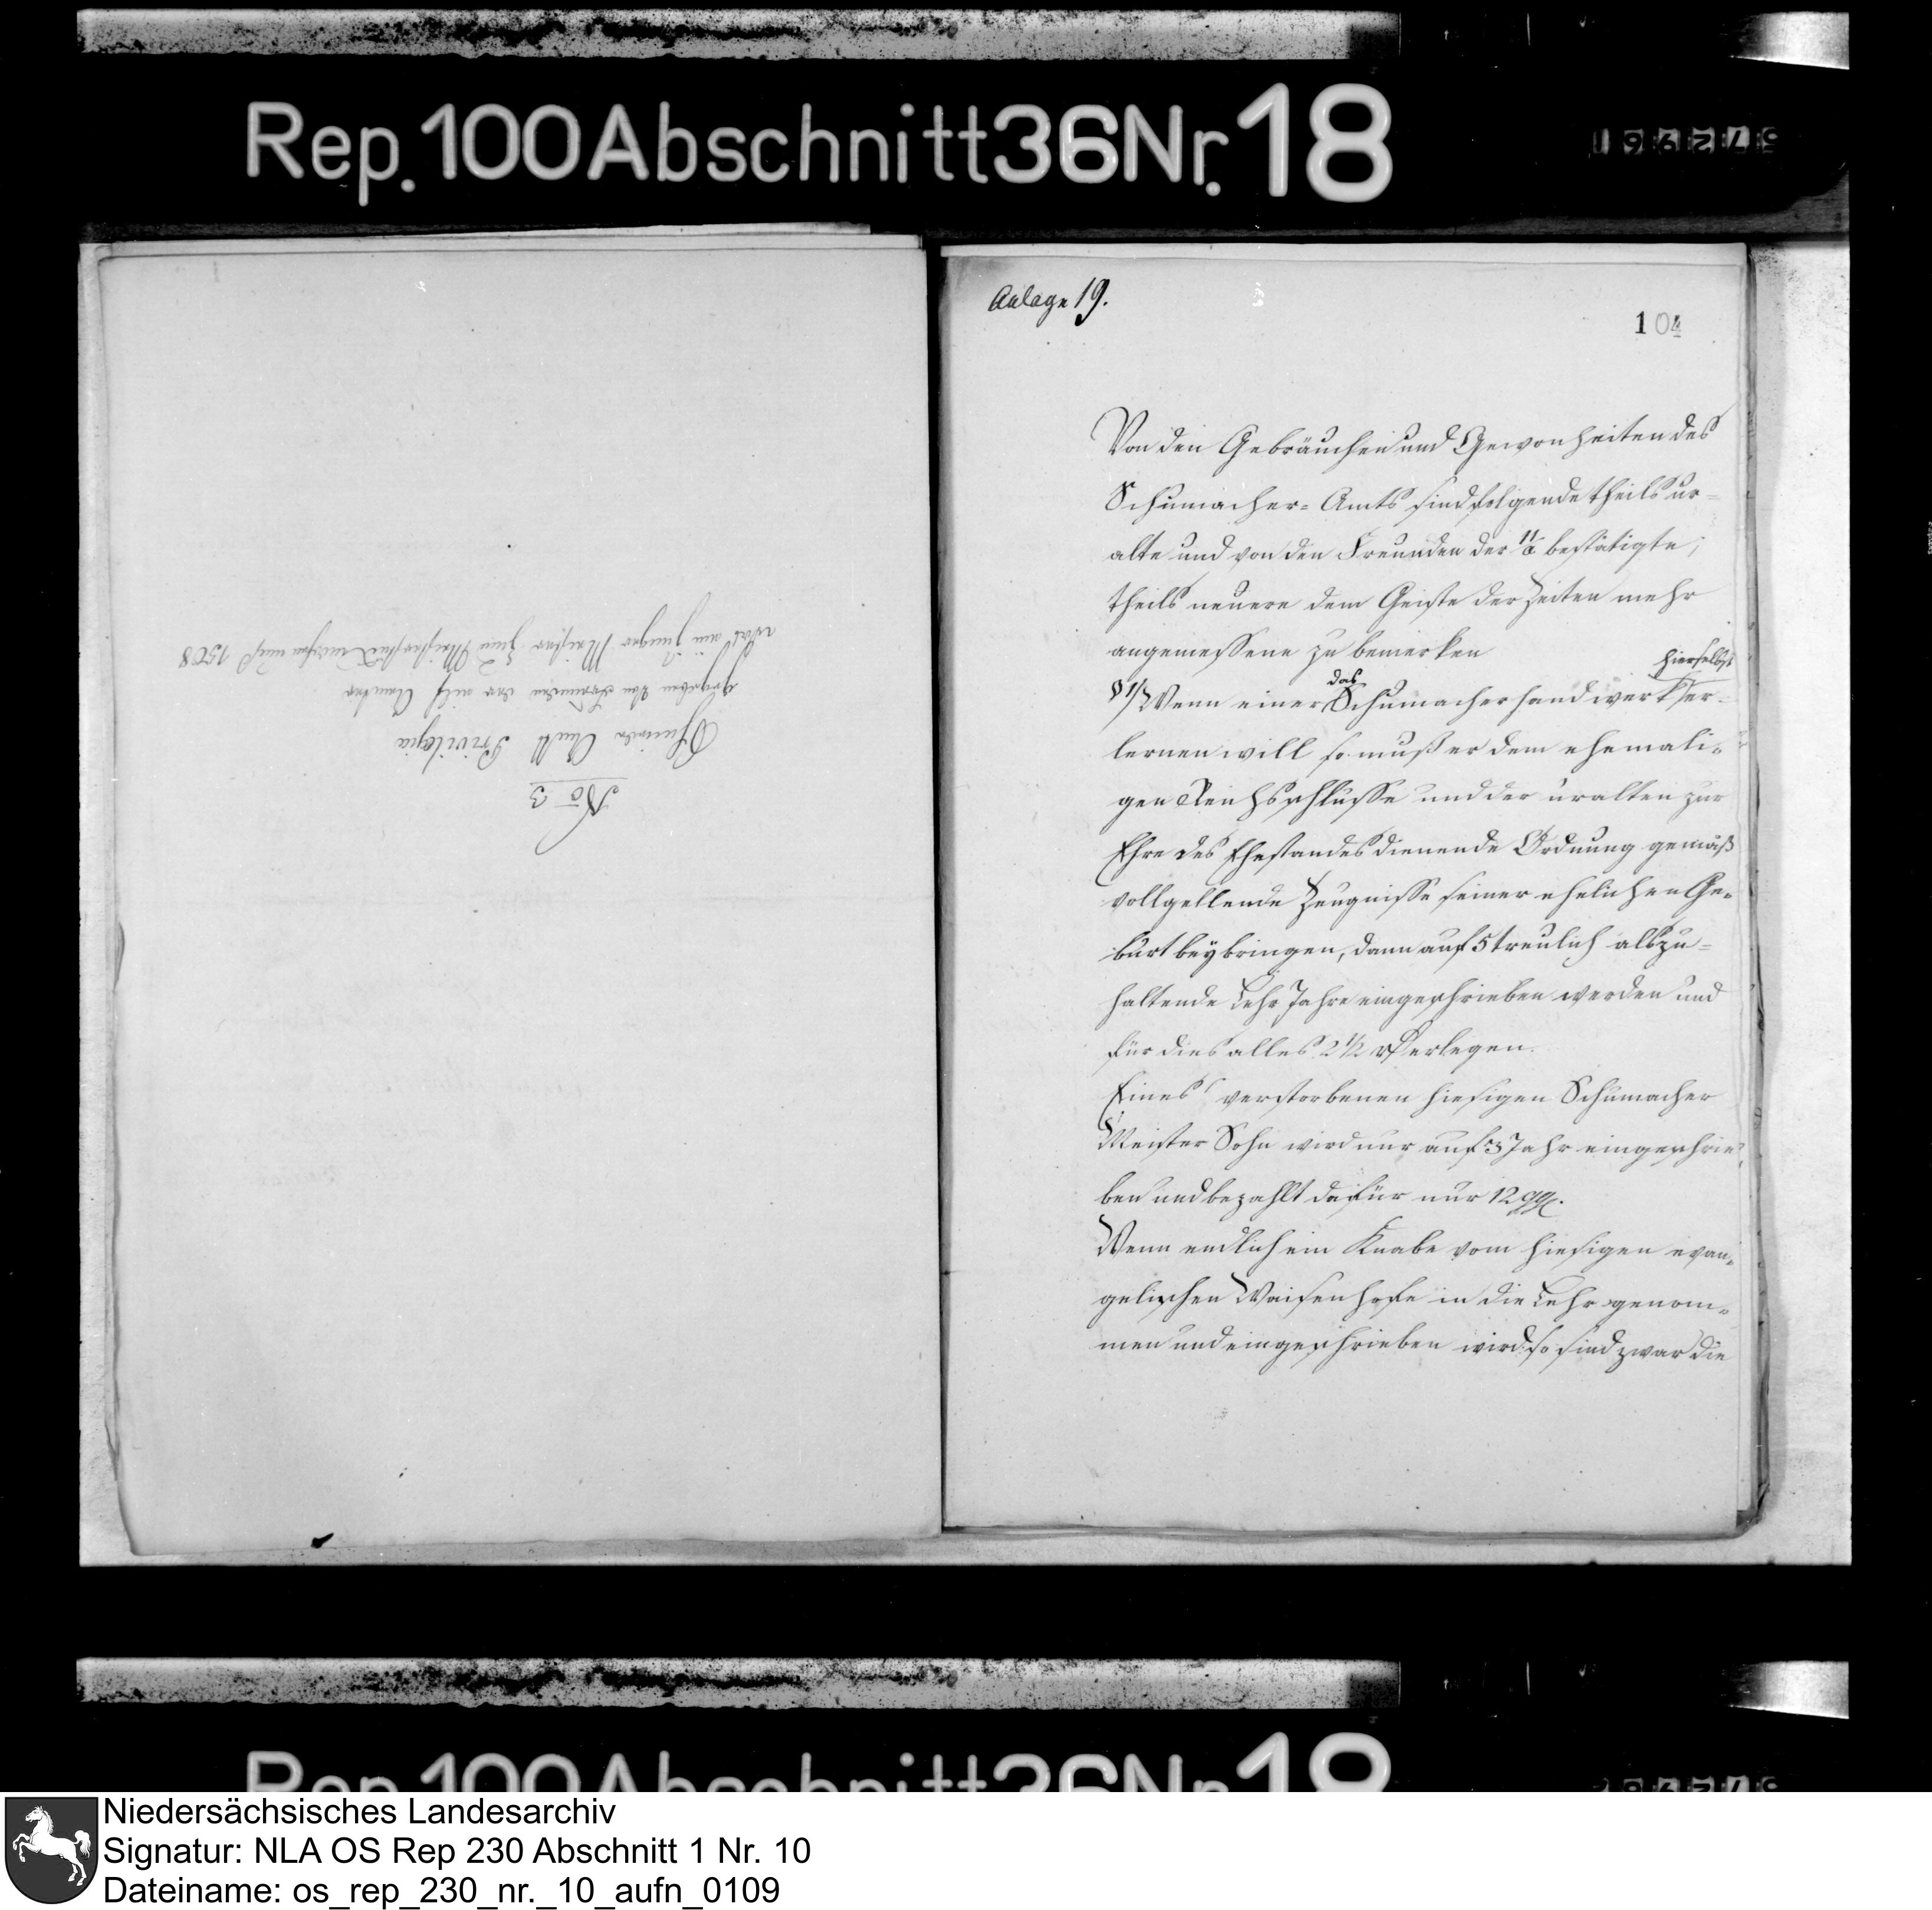 Rep. 100 Abschnitt 36 Nr. 18
No 3
Schumacher Amts Privilegia
gegeben von Freunden der eilf Aemter
wie ein Junger Meister zum Meisterstück 1508
Anlage 19.
104
Von den Gebräuchen und Gewonheiten des
Schumacher- Amts sind folgende theils ur-
alte und von den Freunden der 11/a bestätigte,
theils neuere dem Geiste der Zeiten mehr
angemessene zu bemerken
§ 1/ Wenn einer das Schumacherhandwerk hierselbst er-
lernen will so muß er dem ehemali-
gen Reichsschlusse und der uralten zur
Ehre des Ehestandes dienende Ordnung gemäß
vollgeltende Zeugnisse seiner ehelichen Ge-
burt beybringen, dann auf 5 treulich
haltende Lehr Jahre eingeschrieben werden und
für dies alles 2 1/2 rt erlegen.
Eines verstorbenen hiesigen Schumacher
Meister Sohn wird nur auf 3 Jahr eingeschrie-
ben und bezahlt dafür nur 12 ggl.
Wenn endlich ein Knabe vom hiesigen evan-
gelischen Waisenhofe in die Lehr genom-
men und eingeschrieben wird so sind zwar die
Rep. 100 Abschnitt 36 Nr. 18
Niedersächsisches Landesarchiv
Signatur: NLA OS Rep 230 Abschnitt 1 Nr. 10
Dateiname: os_rep_230_nr._10_aufn_0109